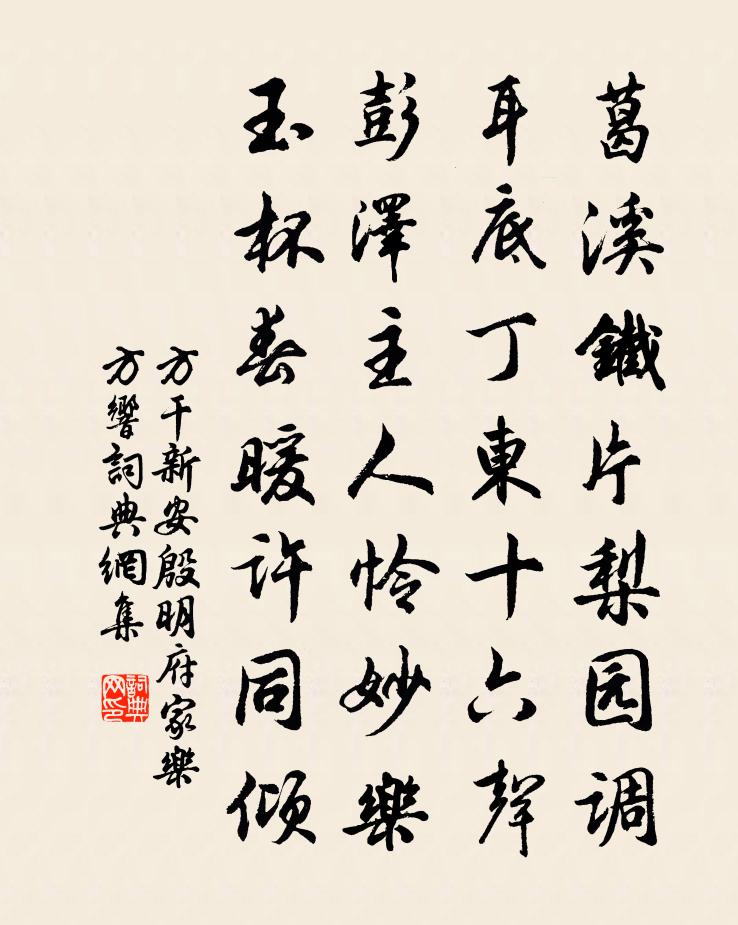 葛溪鐵片梨园调
耳底丁東十六聲
彭澤主人怜妙樂
玉杯春暖许同倾
方干新安殷明府家樂
方響詞典網集
詞典网印